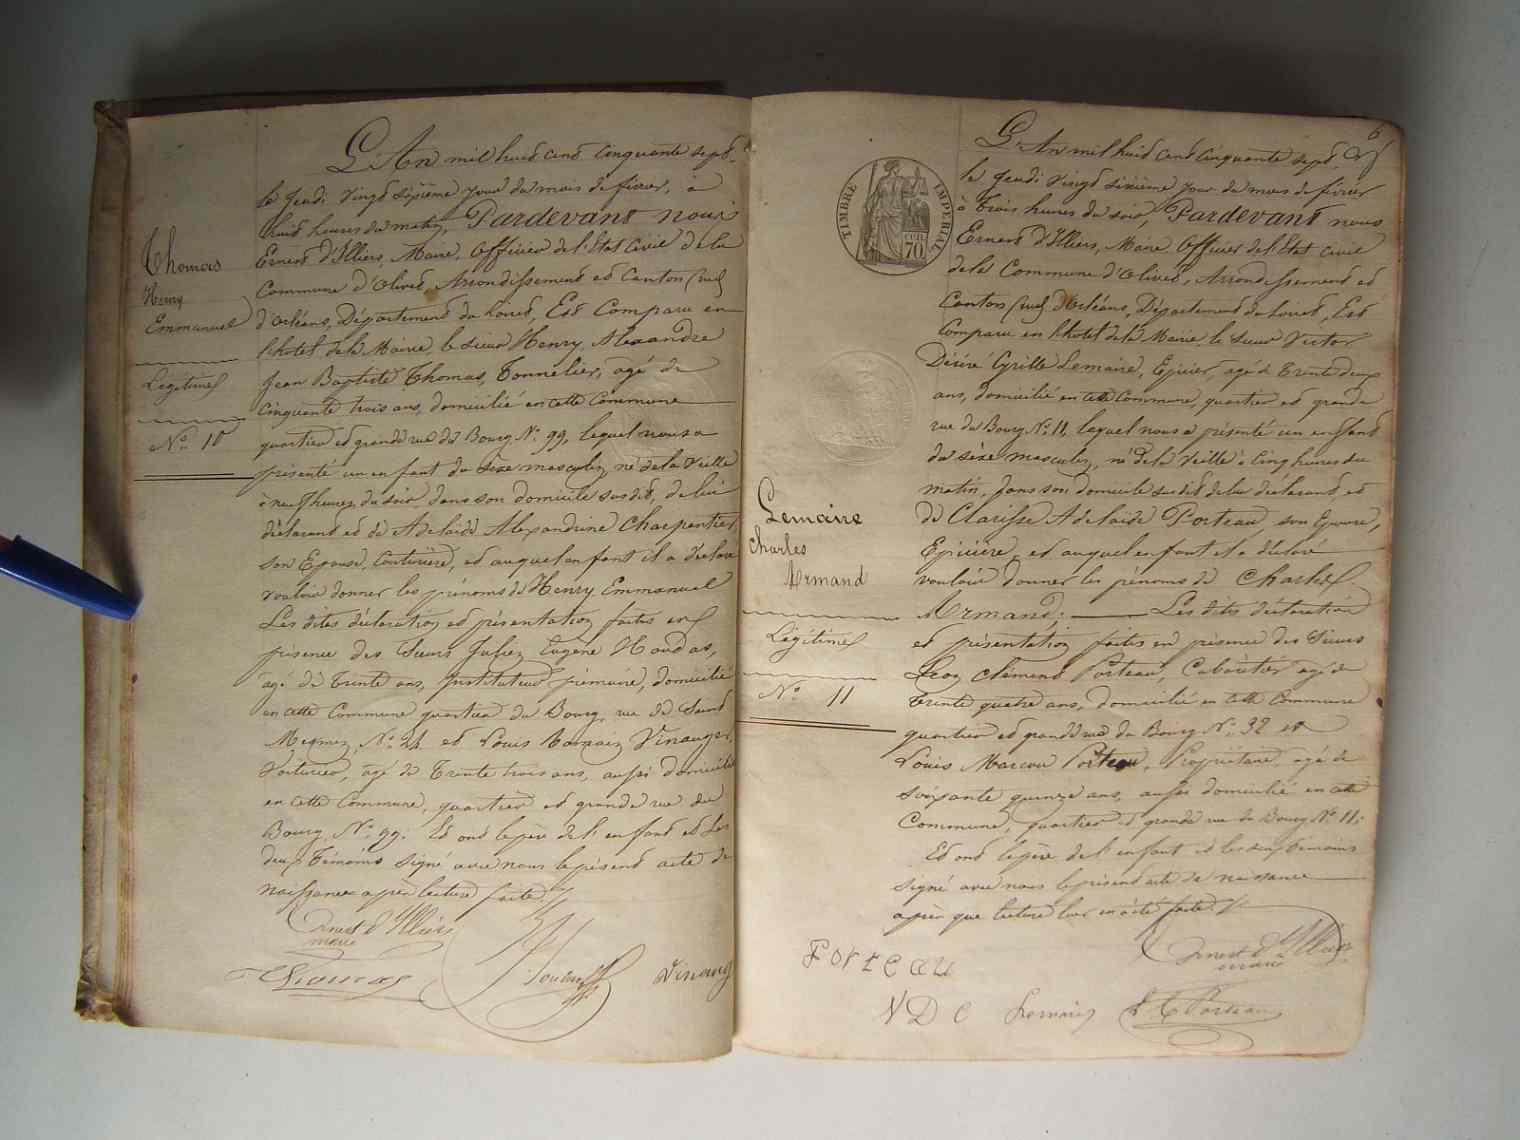 L'An mil huit cent cinquante sept
le Jeudi Vingt sixième jour du mois de février, à
huit heures du matin, Pardevant nous
Ernest d'Illiers, Maire, Officier de l'Etat Civil de la
Commune d'Olivet, Arrondissement et Canton Sud
d'Orléans, Département du Loiret, Est Comparu en
l'hotel de la Mairie, le sieur Henry Alexandre
Jean Baptiste Thomas, Tonnelier, agé de
cinquante trois ans, domicilié en cette Commune
quartier et grande rue du Bourg No. 99, lequel nous a
présenté un enfant du sèxe masculin, né de la Veille
à neuf heures du soir, dans son domicile susdit, de lui
déclarant et de Adelaïde Alexandrine Charpentier
son Epouse, Couturière, et auquel enfant il a déclaré
vouloir donner les prénoms de Henry Emmanuel
Les dites déclaration et présentation faites en
présence des Sieurs Julien Eugène Houdas,
agé de Trente ans, Instituteur primaire, domicilié
en cette Commune quartier du Bourg, rue de Saint
Mesmin, No. 24 et Louis Vinauger,
Voiturier, agé de Trente trois ans, aussi domicilié
en cette Commune, quartier et grande rue du
Bourg, No. 99. Et ont le père de l'enfant et les
deux Témoins signé avec nous le présent acte de
naissance après lecture faite.
Thomas
Henry
Emmanuel
Légitime
No. 10
Ernest d'Illiers
maire
Thomas
Houdas
Vinauger
6
L'An mil huit cent cinquante sept
le Jeudi Vingt sixième jour du mois de février
à Trois heures du soir, Pardevant nous
Ernest d'Illiers, Maire Officier de l'Etat Civil
de la Commune d'Olivet, Arrondissement et
Canton Sud d'Orléans, Département du Loiret, Est
Comparu en l'hotel de la Mairie, le sieur Victor
Désiré Cyrille Lemaire, Epicier, agé de Trente deux
ans, domicilié en cette Commune, quartier et grande
rue du Bourg No. 11, lequel nous a présenté un enfant
du sèxe masculin, né de la Veille à Cinq heures du
matin, dans son domicile susdit de lui déclarant, et
de Clarisse Adelaïde Porteau, son Epouse,
Epicière, et auquel enfant il a déclaré
vouloir donner les prénoms de Charles
Armand. Les dites déclaration
et présentation faites en présence des Sieurs
Léon Clément Porteau, Cabaretier agé de
Trente quatre ans, domicilié en cette Commune
quartier et grande rue du Bourg No. 32 et
Louis Marcou Porteau, Propriétaire, agé de
soixante quinze ans, aussi domicilié en cette
Commune, quartier et grande rue du Bourg No. 11.
Et ont le père de l'enfant et les deux Témoins
signé avec nous le présent acte de naissance
après que lecture leur en a été faite.
TIMBRE IMPERIAL
70
Lemaire
Charles
Armand
Légitime
No. 11
Porteau
Ernest d'Illiers
maire
V D C Lemaire
L C Porteau